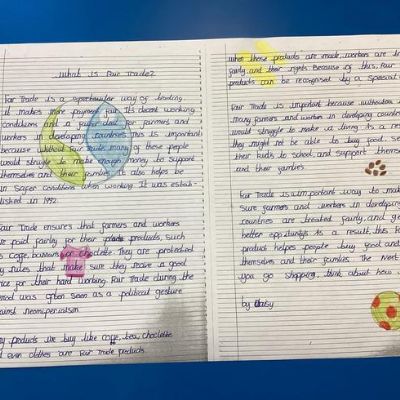 What is Fair Trade?
Fair Trade is a spectacular way of trading
it makes sure payment fair. Its decent working
conditions and a fairer deal for farmers and
workers in developing countries. This is important
because without fair trade many of these people
would struggle to make enough money to support
themselves and their families. It also helps be
in safer conditions when working. It was estab-
lished in 1992.
Fair Trade ensures that farmers and workers
are paid fairly for their products, such
as coffe, bananas or chocolate. They are protected
by rules that make sure they receive a good
price for their hard working. Fair Trade during the
period was often seen as a political gesture
against neoimperialism.
products we buy like coffe, tea, choclate
and even clothes are Fair Trade products.
when these products are made, workers are treated
fairly and their rights. Because of this, Fair
products can be recognised by a special
Fair Trade is important because without
Many farmers and workers in developing countries
would struggle to make a living. As a result
they might not be able to buy food, send
their kids to school and support themselves
and their families.
Fair Trade is an important way to make
sure farmers and workers in developing
countries are treated fairly and get
better oppurtunitys. As a result, this Fair
product helpes people buy good and
themselves and their families. The next
you go shopping, think about how
by Daisy